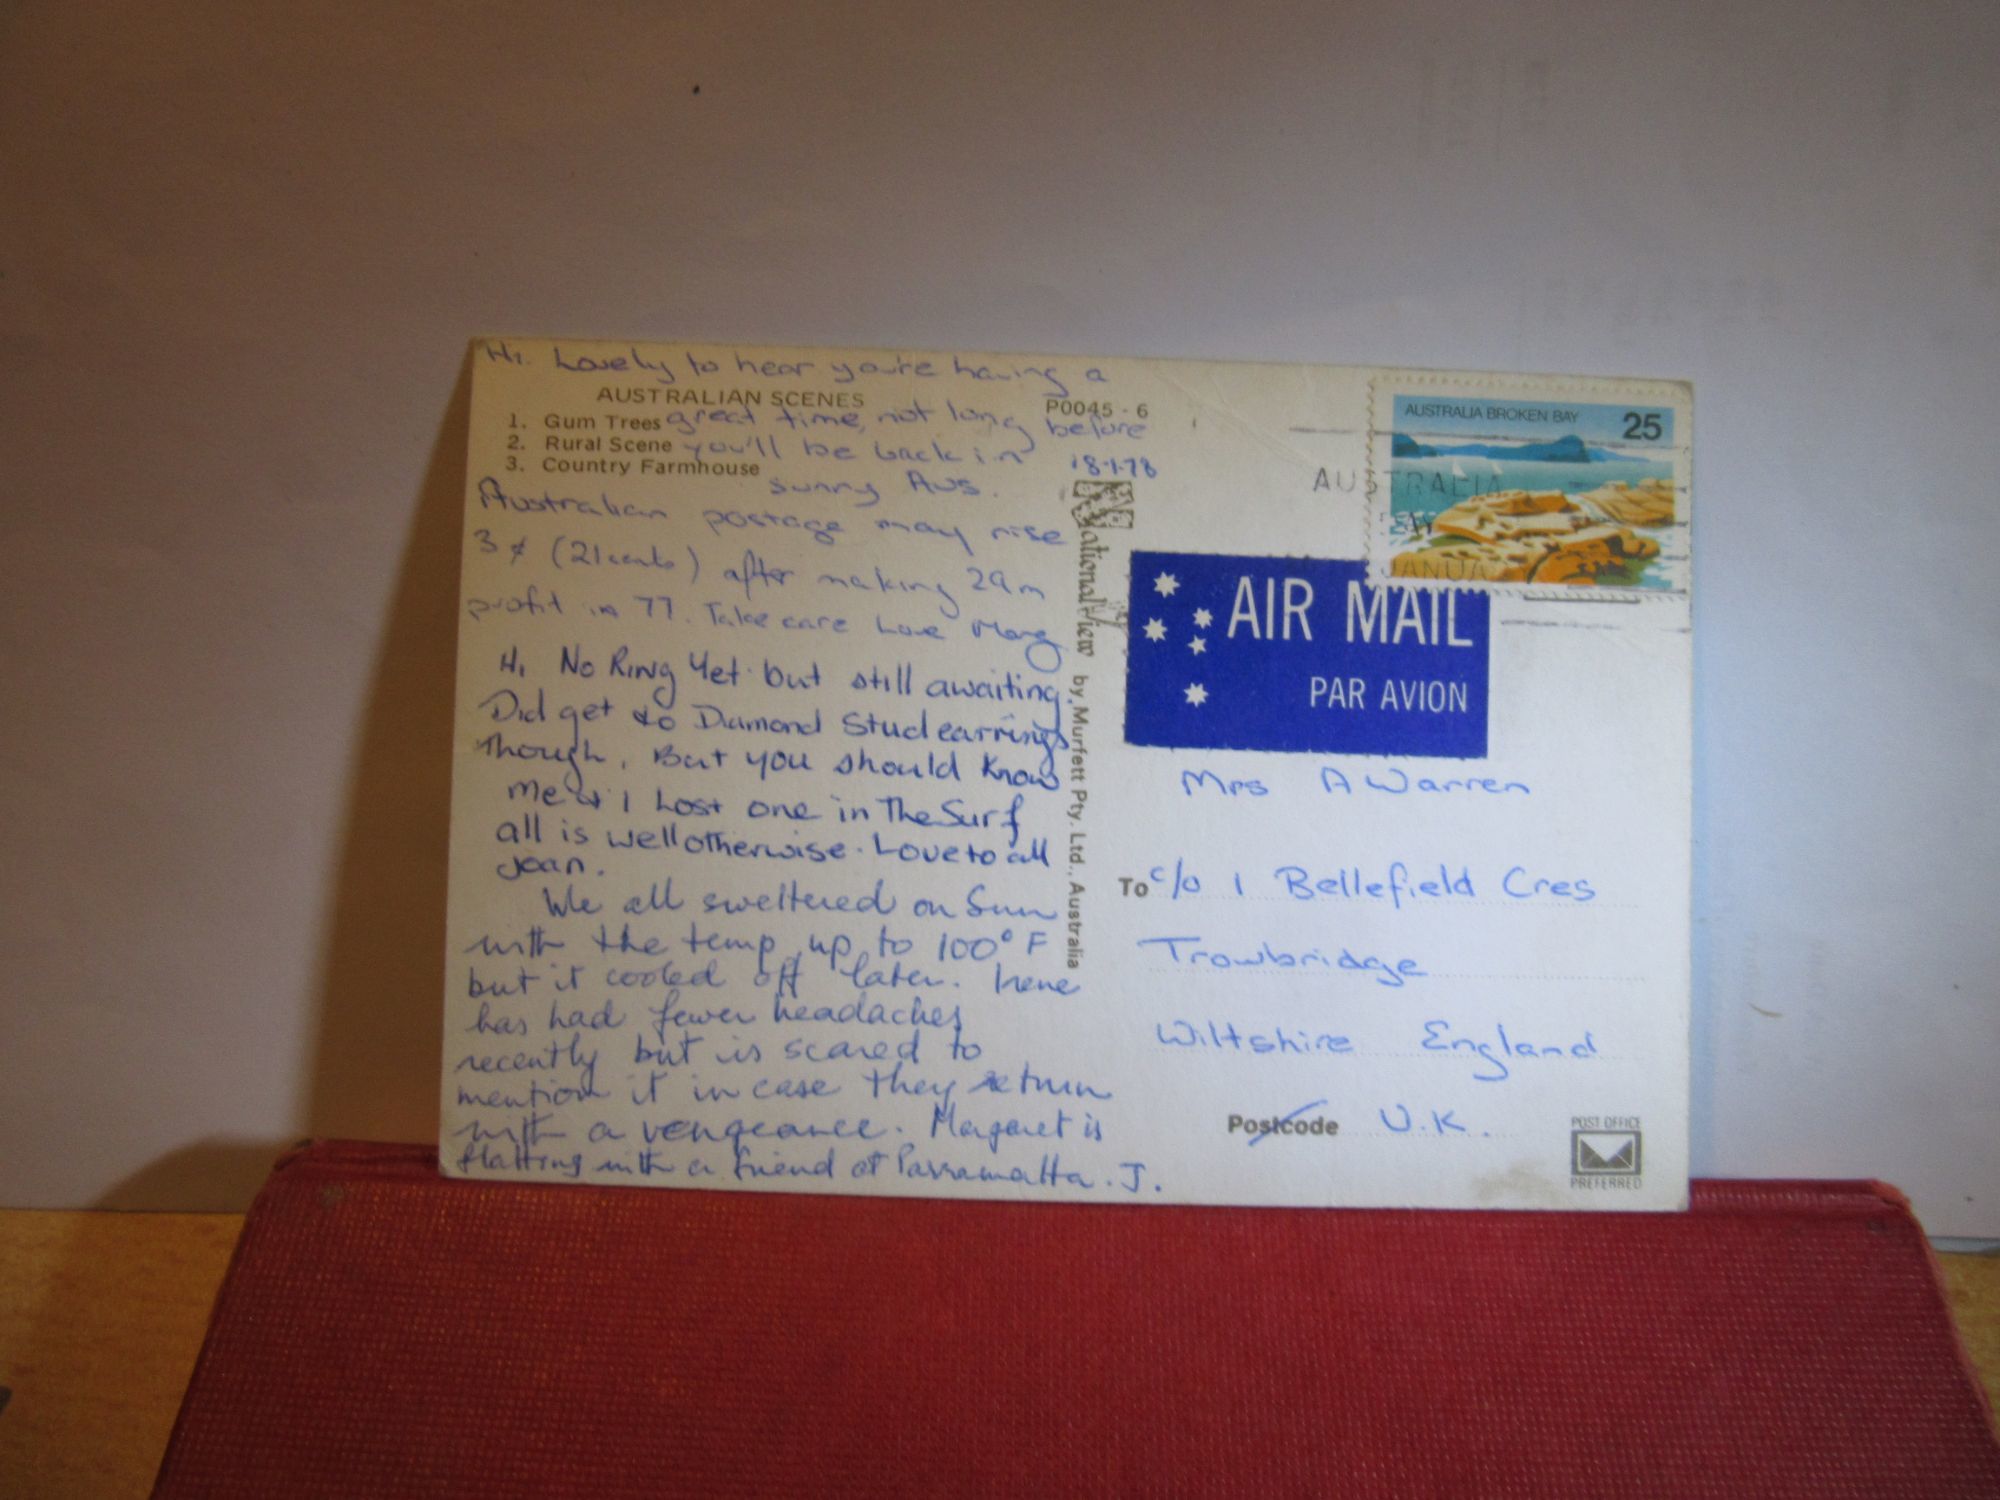 Hi. Lovely to hear you're having a
AUSTRALIAN SCENES
1. Gum Trees great time, not long before
2. Rural Scene you'll be back in
3. Country Farmhouse
sunny Aus.
Australian postage may rise
3¢ (21cents) after making 29m
profit in 77. Take care Love Marg
Hi No Ring Yet but still awaiting.
Did get so Diamond Stud earrings
Though. But you should know
me & I Lost one in The Surf
all is well otherwise. Love to all
Joan.
We all sweltered on Sun
with the temp up to 100° F
but it cooled off later. Irene
has had fewer headaches
recently but is scared to
mention it in case they return
with a vengeance. Margaret is
flatting with a friend at Parramatta. J.
P0045 - 6
18-1-78
National View by Murfett Pty. Ltd., Australia
AUSTRALIA BROKEN BAY 25
AUSTRALIA
JANUA
AIR MAIL
PAR AVION
Mrs A Warren
To c/o 1 Bellefield Cres
Trowbridge
Wiltshire England
Postcode U.K.
POST OFFICE
PREFERRED